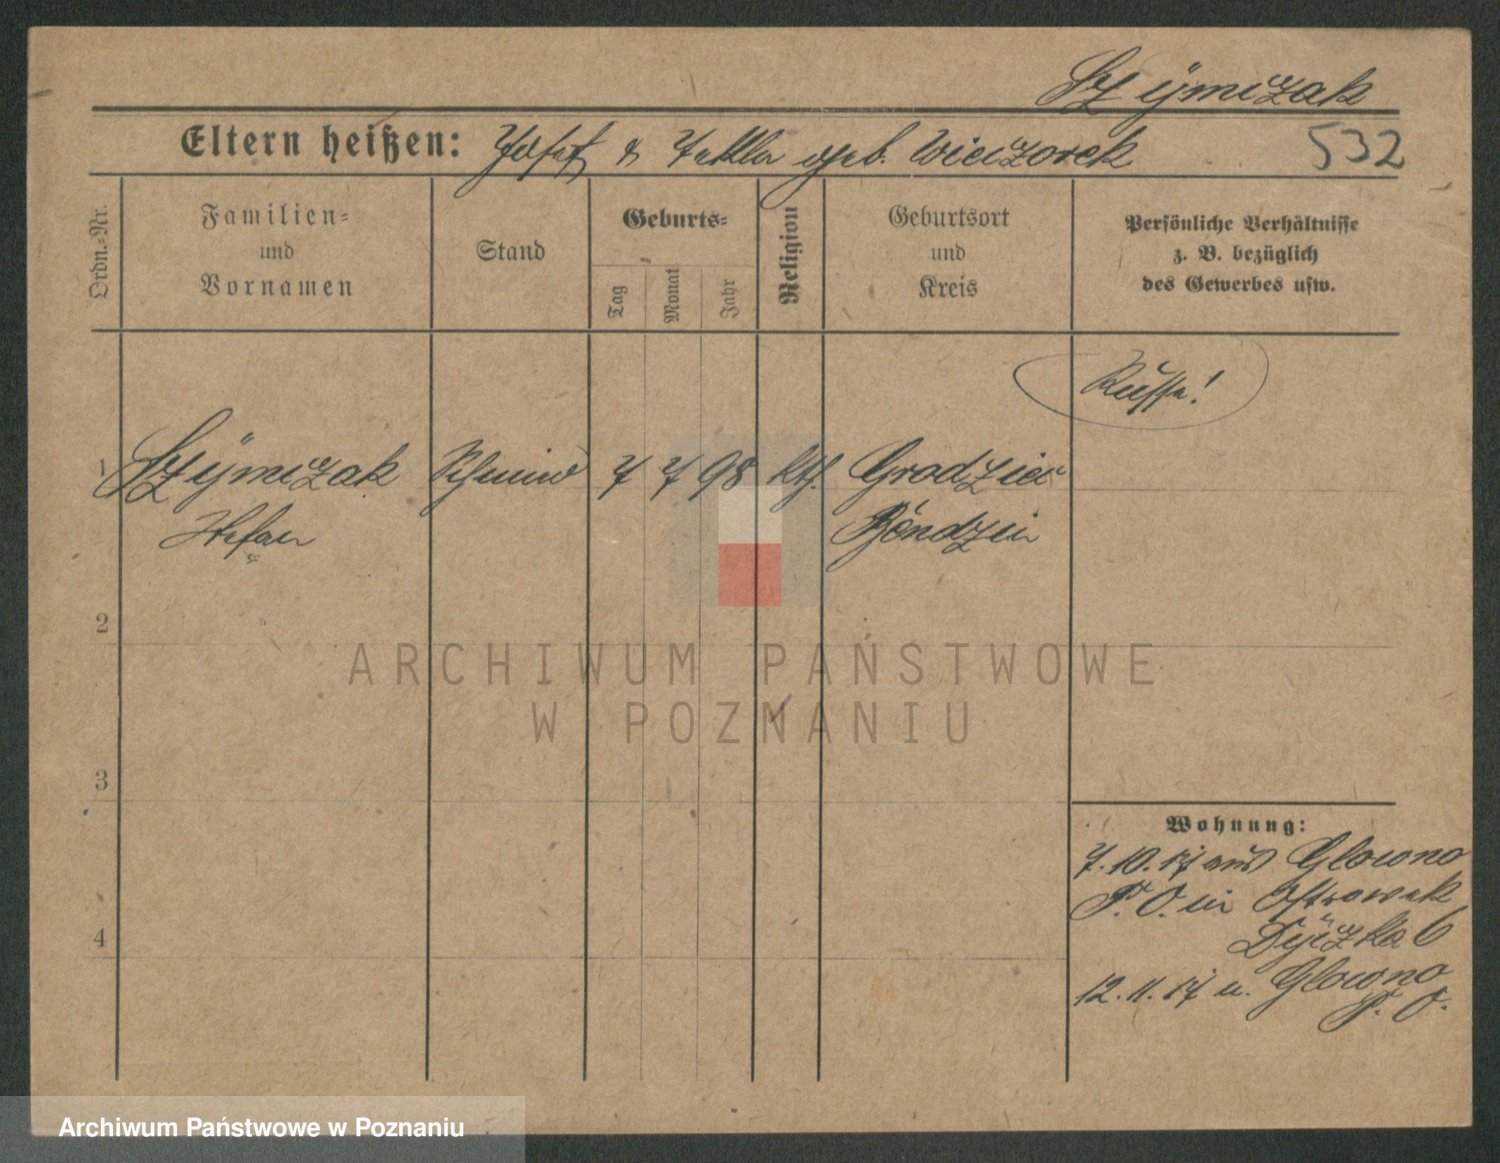 Szÿmczak
Eltern heißen: Josef & Tekla geb. Wieczorek 532
Ordn.-Nr.
Familien-
und
Vornamen
Stand
Geburts-
Tag
Monat
Jahr
Religion
Geburtsort
und
Kreis
Persönliche Verhältnisse
z. B. bezüglich
des Gewerbes usw.
Russe!
1 Szÿmczak Schmied 7 7 98 kth. Grodziec
Stefan Béndzin
2
ARCHIWUM PAŃSTWOWE
W POZNANIU
3
Wohnung:
7.10.17 aus Glowno
P. O. in Ostrowek
6
4
12.11.17 n. Glowno
P. O.
Archiwum Państwowe w Poznaniu